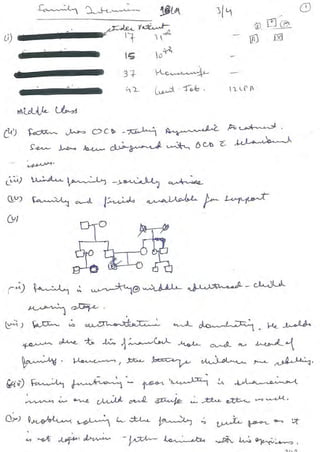 Family Interview 3/4 1
(i) 17 11th
15 10th -
37 Homemaker -
42 Govt. Job. 12 LPA
Middle Class
(ii) Father has OCD - taking Ayurvedic treatment.
Son has been diagnosed with OCD & behavioural
issues.
(iii) Hindu family - socially active
(iv) Family and friends available for support
(v)
(vi) Family is currently @ middle adulthood - child
rearing stage.
(vii) Father is authoritative and dominating. He holds
power due to his financial role and as head of
family. However, the children are rebelling.
(viii) Family functioning is poor resulting in behavioural
issues in one child and in the other as well.
(ix) Problem solving in the family is quite poor as it
is not - father dominates with his opinions.